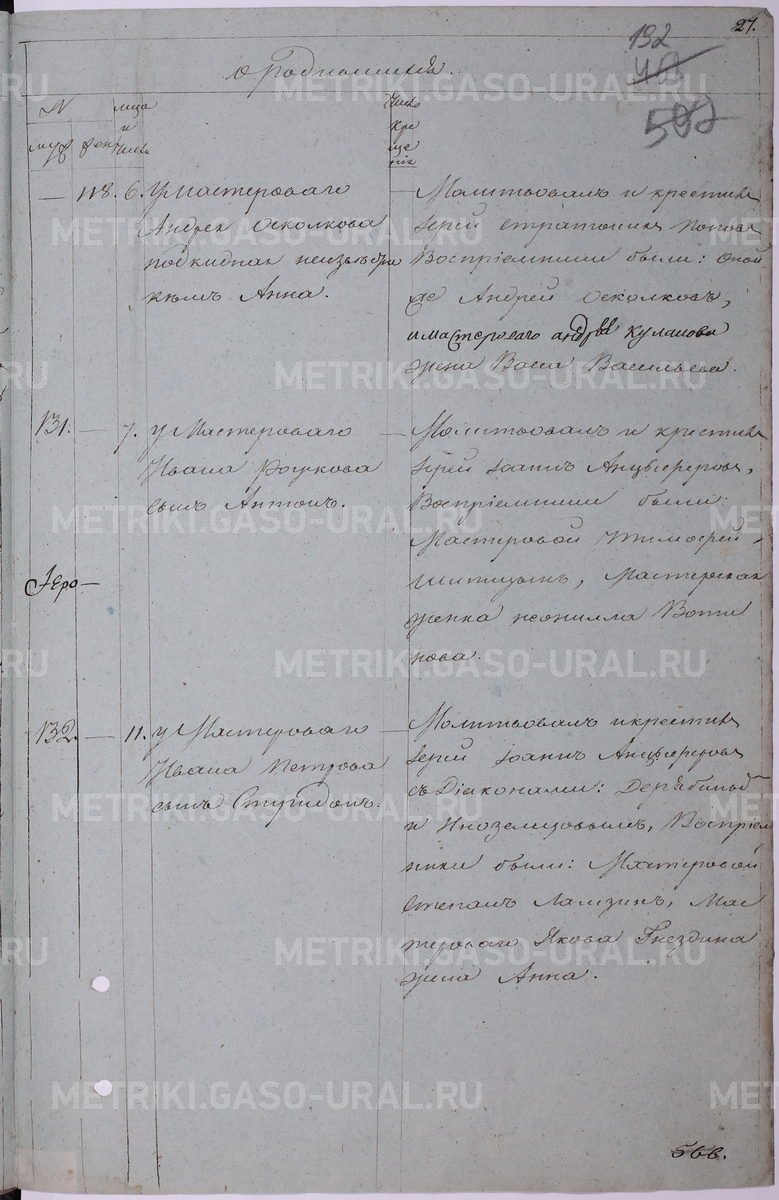 27.
192
502
о родившихся.
№
муж
жен
мца
и
числа
Число
Кре
ще
нія
— 118. 6. У мастероваго
Андрея Осколкова
подкидная неизвѣстно
кѣмъ Анна.
Молитвовалъ и крестилъ
Іерей Стратоникъ Поповъ
Воспріемники были: оной
же Андрей Осколковъ,
и мастероваго Андрѣя Кулакова
жена Васса Васильева.
131. — 7. У Мастероваго
Ивана Рожкова
сынъ Антонъ.
Молитвовалъ и крестилъ
Іерей Іоаннъ Анцыферовъ,
Воспріемники были:
Мастеровой Тимофей
Шипицынъ, Мастерская
женка Неонилла Воти
нова.
Іеро—
132. — 11. У Мастероваго
Ивана Петрова
сынъ Спиридонъ.
Молитвовалъ и крестилъ
Іерей Іоаннъ Анцыферовъ
съ Діаконами: Дерябиной
и Иноземцовымъ, Воспріем
ники были: Мастеровой
Степанъ Лямзинъ, Мас
тероваго Якова Гнездина
жена Анна.
566.
METRIKI.GASO-URAL.RU